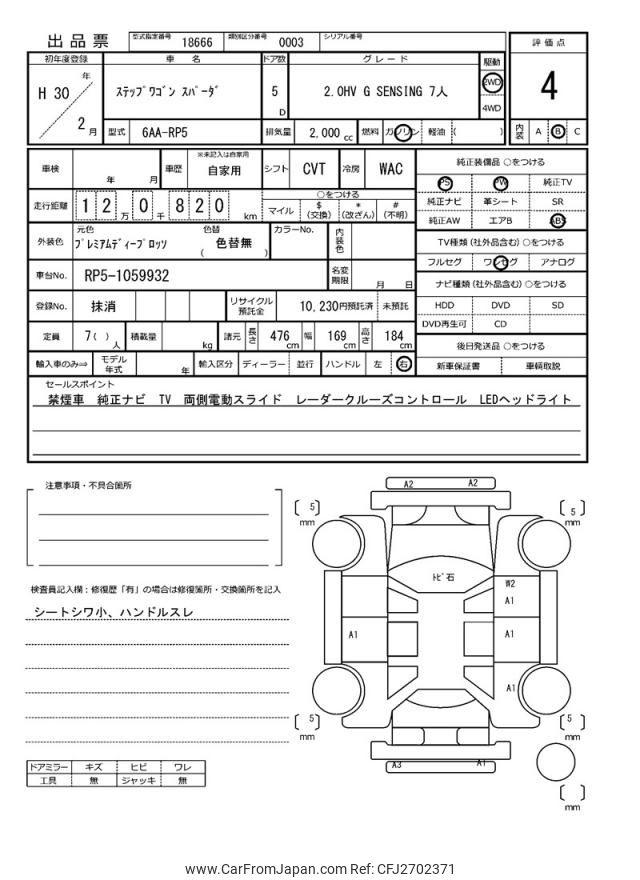 出品票 型式指定番号 18666 類別区分番号 0003 シリアル番号
初年度登録 車 名 ドア数 グレード 駆動 評価点
H 30 年 2 月
ステップワゴン スパーダ
5 D
2.0HV G SENSING 7人
2WD
4WD
4
型式 6AA-RP5 排気量 2,000 cc 燃料 ガソリン 軽油 ( ) 内装 A B C
車検 年 月 車歴 ※未記入は自家用 自家用 シフト CVT 冷房 WAC
走行距離 1 2 万 0 千 8 2 0 km
○をつける
マイル $ (交換) * (改ざん) # (不明)
外装色 元色 プレミアムディープロッソ 色替 ( 色替無 ) カラーNo. 内装色
車台No. RP5-1059932 名変期限 月 日
登録No. 抹消 リサイクル預託金 10,230円預託済 未預託
定員 7( ) 人 積載量 kg 諸元 長さ 476 cm 幅 169 cm 高さ 184 cm
輸入車のみ⇒ モデル年式 年 輸入区分 ディーラー 並行 ハンドル 左 右
純正装備品 ○をつける
PS PW 純正TV
純正ナビ 革シート SR
純正AW エアB ABS
TV種類 (社外品含む) ○をつける
フルセグ ワンセグ アナログ
ナビ種類 (社外品含む) ○をつける
HDD DVD SD
DVD再生可 CD
後日発送品 ○をつける
新車保証書 車輌取説
セールスポイント
禁煙車 純正ナビ TV 両側電動スライド レーダークルーズコントロール LEDヘッドライト
注意事項・不具合箇所
検査員記入欄：修復歴「有」の場合は修復箇所・交換箇所を記入
シートシワ小、ハンドルスレ
ドアミラー キズ ヒビ ワレ
工具 無 ジャッキ 無
A2 A2
5 mm
5 mm
トビ石
W2
A1
A1
A1
A1
5 mm
5 mm
A3 A1
mm
www.CarFromJapan.com Ref: CFJ2702371